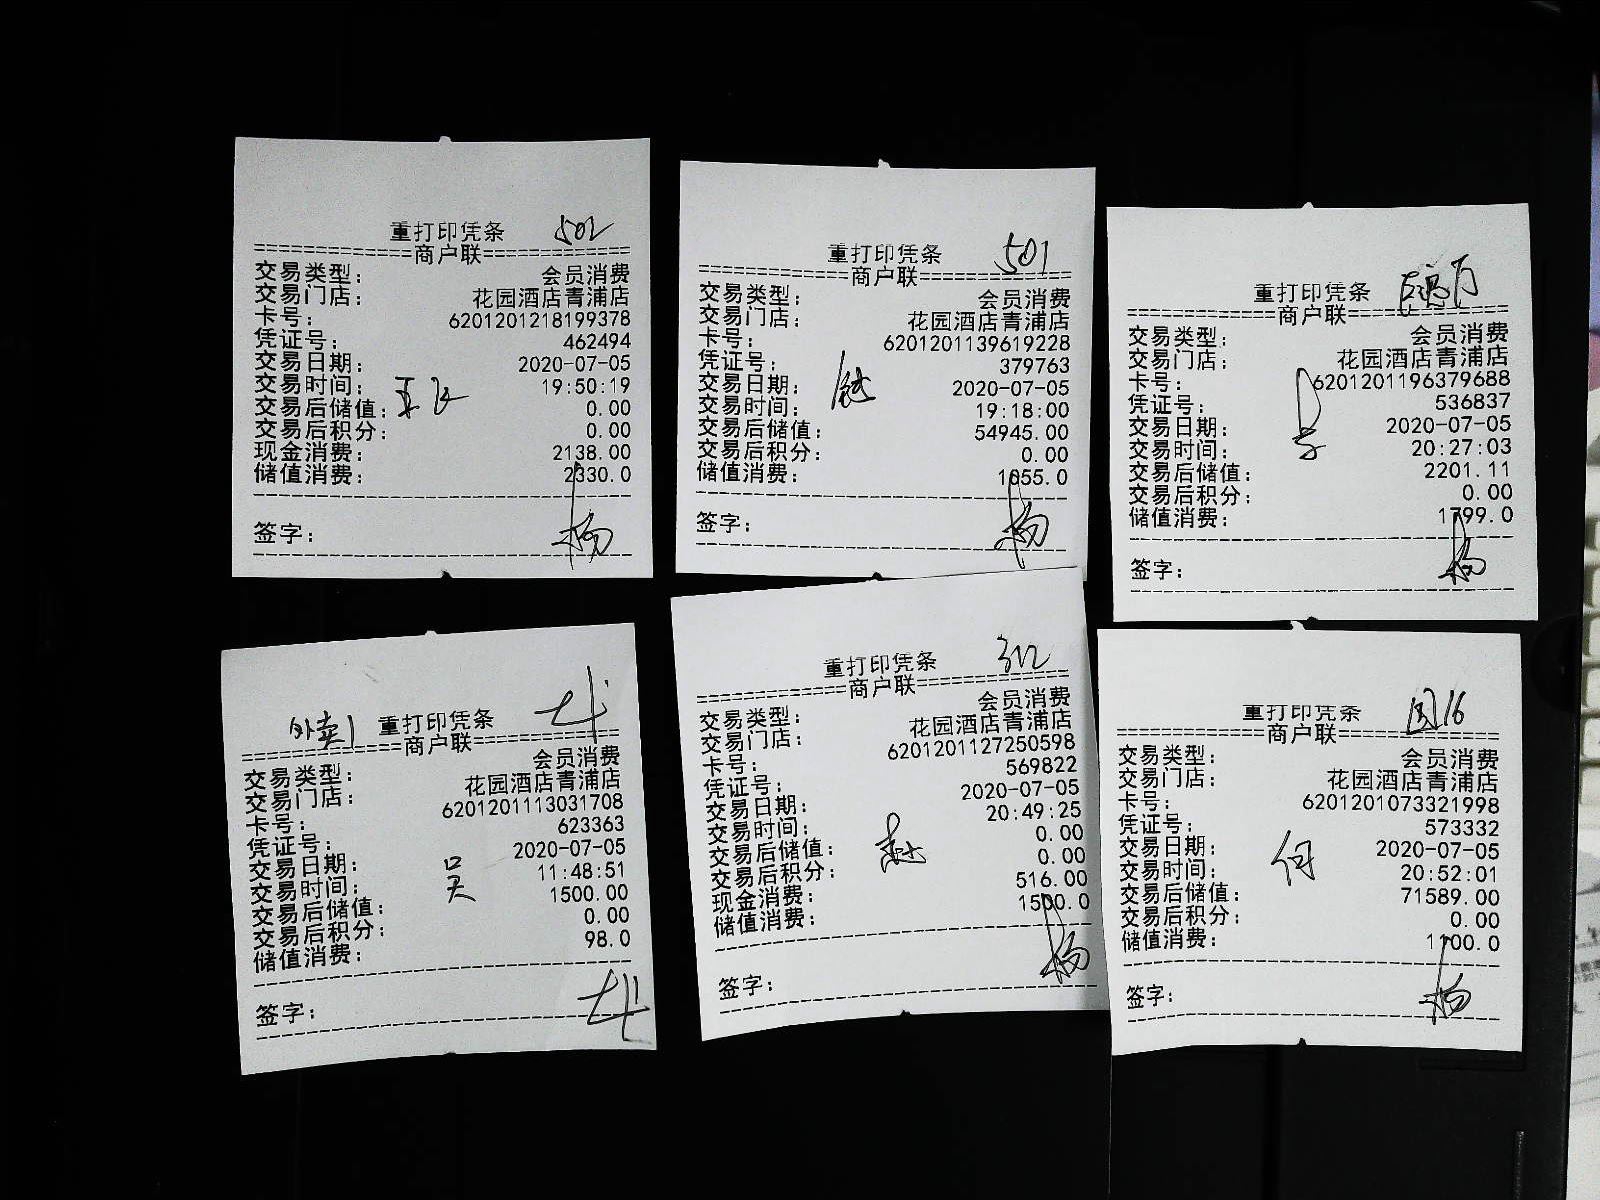 重打印凭条 502
商户联
交易类型: 会员消费
交易门店: 花园酒店青浦店
卡号: 6201201218199378
凭证号: 462494
交易日期: 2020-07-05
交易时间: 19:50:19
交易后储值: 0.00
交易后积分: 0.00
现金消费: 2138.00
储值消费: 2330.0
签字: 杨
重打印凭条 501
商户联
交易类型: 会员消费
交易门店: 花园酒店青浦店
卡号: 6201201139619228
凭证号: 379763
交易日期: 2020-07-05
交易时间: 19:18:00
交易后储值: 54945.00
交易后积分: 0.00
储值消费: 1055.0
签字: 杨
重打印凭条
商户联
交易类型: 会员消费
交易门店: 花园酒店青浦店
卡号: 6201201196379688
凭证号: 536837
交易日期: 2020-07-05
交易时间: 20:27:03
交易后储值: 2201.11
交易后积分: 0.00
储值消费: 1799.0
签字: 杨
外卖1 重打印凭条
商户联
交易类型: 会员消费
交易门店: 花园酒店青浦店
卡号: 6201201113031708
凭证号: 623363
交易日期: 2020-07-05
交易时间: 11:48:51
吴
交易后储值: 1500.00
交易后积分: 0.00
储值消费: 98.0
签字:
重打印凭条 312
商户联
交易类型: 会员消费
交易门店: 花园酒店青浦店
卡号: 6201201127250598
凭证号: 569822
交易日期: 2020-07-05
交易时间: 20:49:25
交易后储值: 0.00
交易后积分: 0.00
现金消费: 516.00
储值消费: 1500.0
签字: 杨
重打印凭条 园16
商户联
交易类型: 会员消费
交易门店: 花园酒店青浦店
卡号: 6201201073321998
凭证号: 573332
交易日期: 2020-07-05
交易时间: 何 20:52:01
交易后储值: 71589.00
交易后积分: 0.00
储值消费: 1100.0
签字: 杨